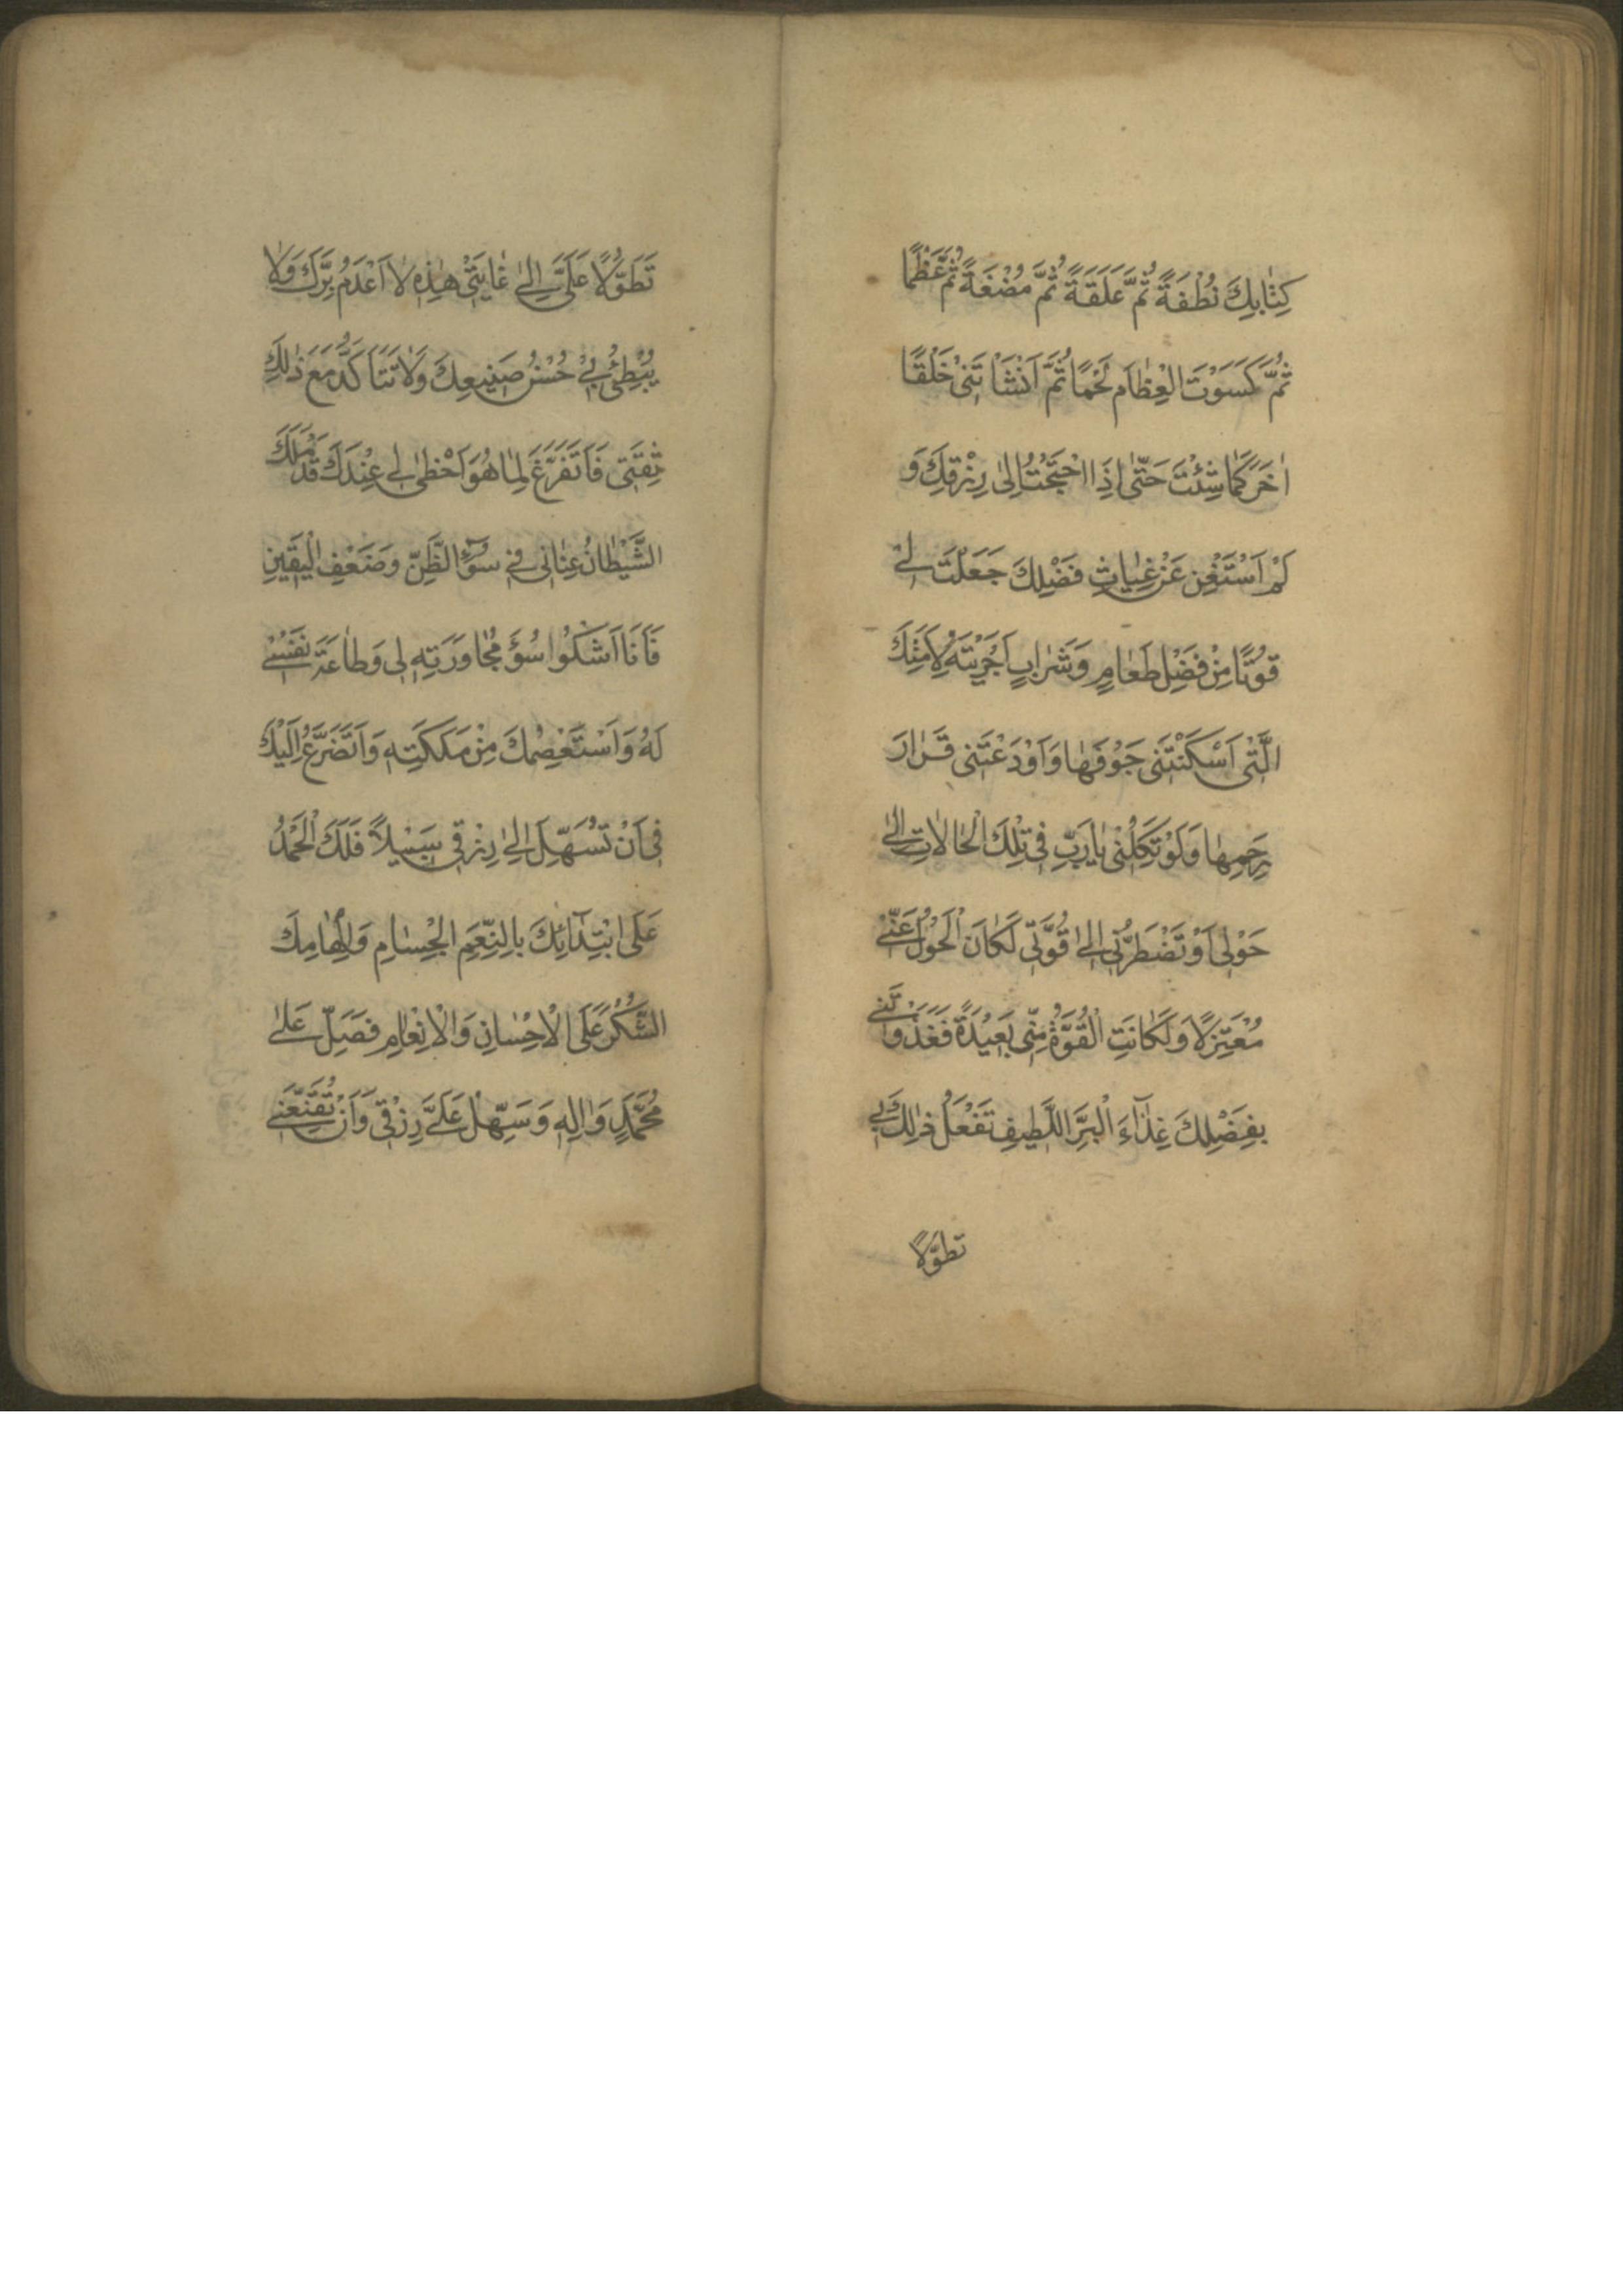 كِتٰابِكَ نُطْفَةً ثُمَّ عَلَقَةً ثُمَّ مُضْغَةً ثُمَّ عَظْمًا
ثُمَّ كَسَوْتَ الْعِظٰامَ لَحْمًا ثُمَّ اَنْشَاْتَنِىْ خَلْقًا
اٰخَرَ كَمٰا شِئْتَ حَتّٰى اِذَا احْتَجْتُ اِلىٰ رِزْقِكَ وَ
لَمْ اَسْتَغْنِ عَنْ غِيٰاثِ فَضْلِكَ جَعَلْتَ لِىْ
قُوْتًا مِنْ فَضْلِ طَعٰامٍ وَشَرٰابٍ اَجْرَيْتَهُ لِاَمَتِكَ
الَّتِىْ اَسْكَنْتَنِى جَوْفَهٰا وَاَوْدَعْتَنِى قَرٰارَ
رَحِمِهٰا وَلَوْ تَكِلْنِىْ يٰارَبِّ فِىْ تِلْكَ الْحٰالاٰتِ اِلىٰ
حَوْلِىْ اَوْ تَضْطَرُّنِىْ اِلىٰ قُوَّتِىْ لَكٰانَ الْحَوْلُ عَنِّىْ
مُعْتَزِلًا وَلَكٰانَتِ الْقُوَّةُ مِنِّىْ بَعِيْدَةً فَغَذَوْتَنِىْ
بِفَضْلِكَ غِذٰآءَ الْبَرِّ اللَّطِيفِ تَفْعَلُ ذٰلِكَ بِىْ
تطوّلًا
تَطَوُّلًا عَلَىَّ اِلىٰ غٰايَتِىْ هٰذِهِ لاٰ اَعْدَمُ بِرَّكَ وَلاٰ
يُبْطِئُ بِىْ حُسْنُ صَنِيعِكَ وَلاٰ تَتَاَكَّدُ مَعَ ذٰلِكَ
ثِقَتِى فَاَتَفَرَّغَ لِمٰا هُوَ اَحْظىٰ لِى عِنْدَكَ قَدْ مَلَكَ
الشَّيْطٰانُ عِنٰانِى فِى سُوْٓءِ الظَّنِّ وَضَعْفِ الْيَقِينِ
فَاَنَا اَشْكُوا سُوْٓءَ مُجٰاوَرَتِهِ لِى وَطٰاعَةَ نَفْسِىْ
لَهُ وَاَسْتَعْصِمُكَ مِنْ مَلَكَتِهِ وَاَتَضَرَّعُ اِلَيْكَ
فِى اَنْ تُسَهِّلَ اِلىٰ رِزْقِى سَبِيْلاً فَلَكَ الْحَمْدُ
عَلَى ابْتِدٰٓائِكَ بِالنِّعَمِ الْجِسٰامِ وَاِلْهٰامِكَ
الشُّكْرَ عَلَى الْاِحْسٰانِ وَالْاِنْعٰامِ فَصَلِّ عَلىٰ
مُحَمَّدٍ وَاٰلِهِ وَسَهِّلْ عَلَىَّ رِزْقِى وَاَنْ تُقَنِّعَنِى